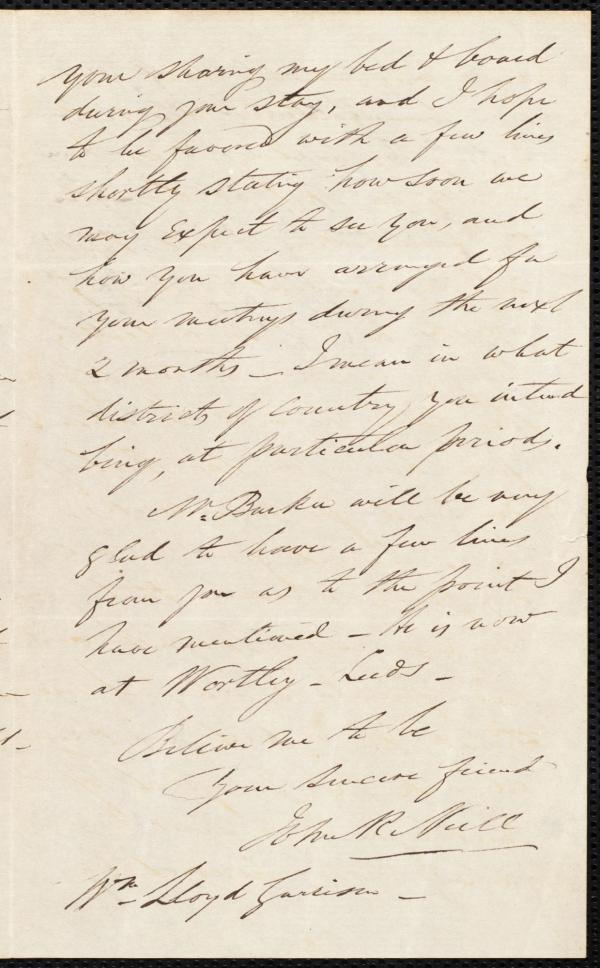 your sharing my bed & board
during your stay, and I hope
to be favored with a few lines
shortly stating how soon we
may expect to see you, and
how you have arranged for
your meetings during the next
2 months – I mean in what
districts of country you intend
being, at particular periods.
Mr. Barker will be very
glad to have a few lines
from you as to the point I
have mentioned – He is now
at Wortley – Leeds –
Believe me to be
Your sincere friend
John R Neill
Wm. Lloyd Garrison –